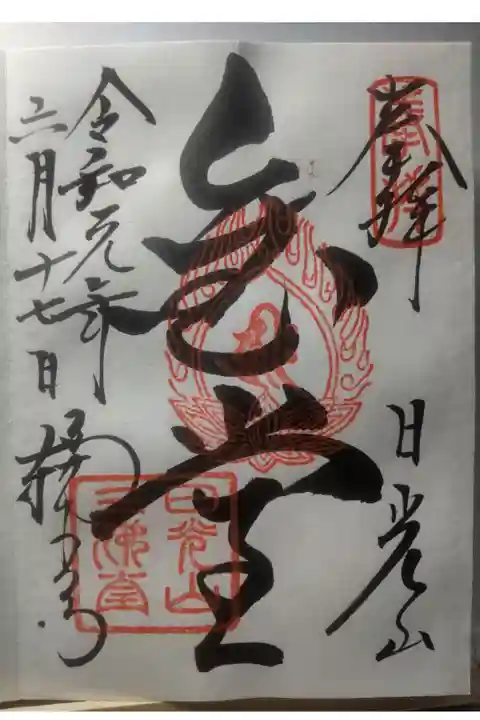 奉拝
日光山
金堂
令和元年
六月十七日
輪王寺
奉拝
日光山
三佛堂